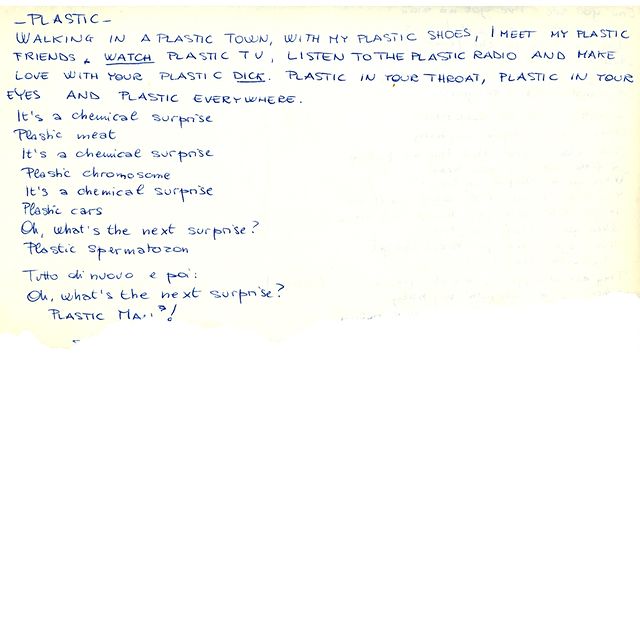 - PLASTIC -
WALKING IN A PLASTIC TOWN, WITH MY PLASTIC SHOES, I MEET MY PLASTIC
FRIENDS, WATCH PLASTIC TV, LISTEN TO THE PLASTIC RADIO AND MAKE
LOVE WITH YOUR PLASTIC DICK. PLASTIC IN YOUR THROAT, PLASTIC IN YOUR
EYES AND PLASTIC EVERYWHERE.
It's a chemical surprise
Plastic meat
It's a chemical surprise
Plastic chromosome
It's a chemical surprise
Plastic cars
Oh, what's the next surprise?
Plastic spermatozon
Tutto di nuovo e poi:
Oh, what's the next surprise?
PLASTIC